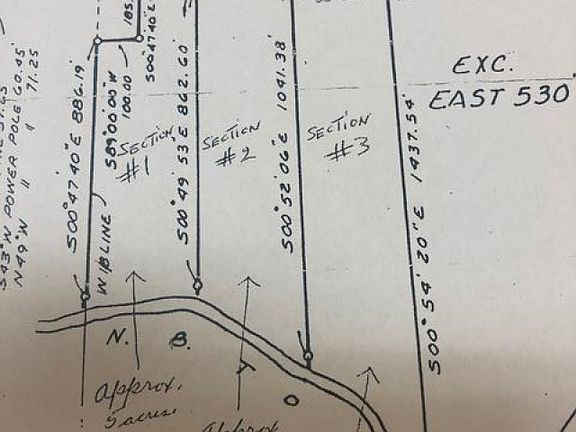 S43°W POWER POLE 60.45'
N49°W " " 71.25
S00°47'40"E 886.19'
W/BLINE
S89°00'00"W
100.00
185.
S00°47'40"E
SECTION
#1
S00°49'53"E 862.60'
SECTION
#2
S00°52'06"E 1041.38'
SECTION
#3
S00°54'20"E 1437.54'
EXC.
EAST 530
N. B. Y O
Approx.
5 acres
Approx